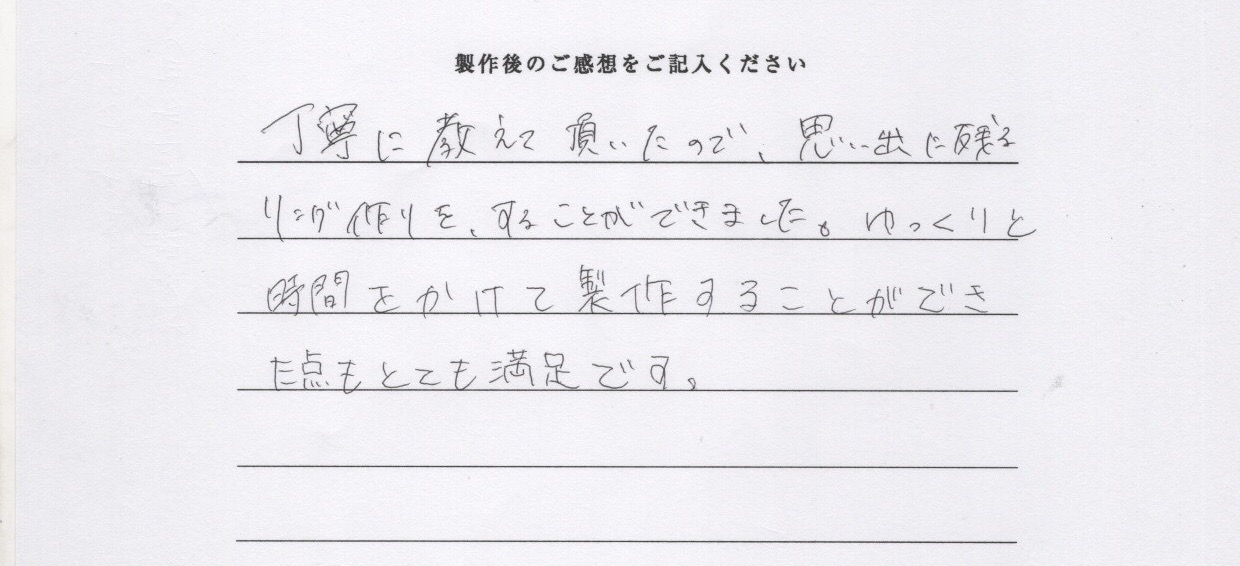 製作後のご感想をご記入ください
丁寧に教えて頂いたので、思い出に残る
リング作りを、することができました。ゆっくりと
時間をかけて製作することができ
た点もとても満足です。